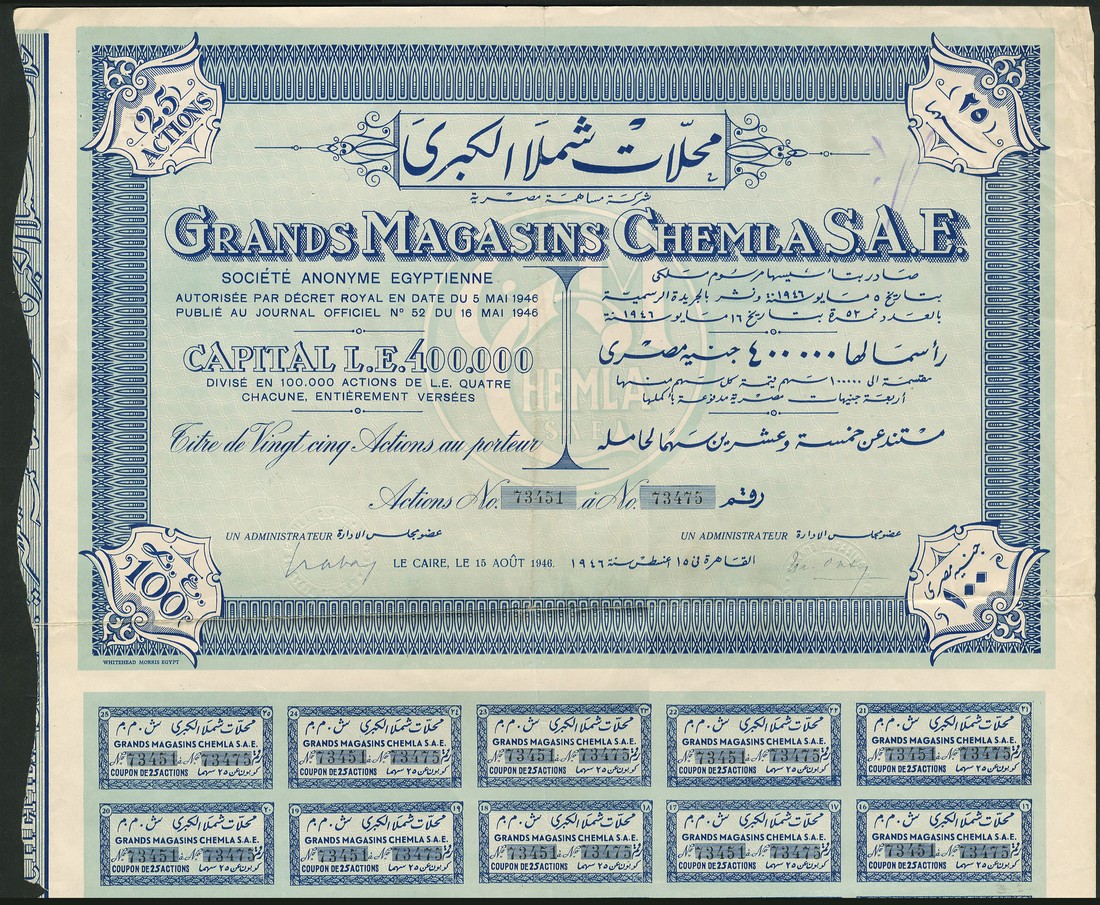 25
ACTIONS
٢٥
سهم
محلات شملا الكبرى
شركة مساهمة مصرية
GRANDS MAGASINS CHEMLA S.A.E.
SOCIÉTÉ ANONYME EGYPTIENNE
AUTORISÉE PAR DÉCRET ROYAL EN DATE DU 5 MAI 1946
PUBLIÉ AU JOURNAL OFFICIEL Nº 52 DU 16 MAI 1946
صادر بتأسيسها مرسوم ملكى
بتاريخ ٥ مايو سنة ١٩٤٦ ونشر بالجريدة الرسمية
بالعدد نمرة ٥٢ بتاريخ ١٦ مايو سنة ١٩٤٦
CAPITAL L.E. 400.000
DIVISÉ EN 100.000 ACTIONS DE L.E. QUATRE
CHACUNE, ENTIÈREMENT VERSÉES
رأسمالها ٤٠٠٠٠٠ جنيه مصرى
مقسمة الى ١٠٠٠٠٠ سهم قيمة كل سهم منها
أربعة جنيهات مصرية مدفوعة بأكملها
CHEMLA
S.A.E.
Titre de Vingt cinq Actions au porteur
مستند عن خمسة وعشرين سهما لحامله
Actions No. 73451 à No. 73475 رقم
UN ADMINISTRATEUR عضو مجلس الادارة
UN ADMINISTRATEUR عضو مجلس الادارة
LE CAIRE, LE 15 AOÛT 1946. القاهرة فى ١٥ اغسطس سنة ١٩٤٦
L.E.
100
جنيه مصرى
١٠٠
WHITEHEAD MORRIS EGYPT
25 محلات شملا الكبرى ش.م.م ٢٥
GRANDS MAGASINS CHEMLA S.A.E.
Nº 73451 à Nº 73475 رقم
COUPON DE 25 ACTIONS كوبون عن ٢٥ سهما
24 محلات شملا الكبرى ش.م.م ٢٤
GRANDS MAGASINS CHEMLA S.A.E.
Nº 73451 à Nº 73475 رقم
COUPON DE 25 ACTIONS كوبون عن ٢٥ سهما
23 محلات شملا الكبرى ش.م.م ٢٣
GRANDS MAGASINS CHEMLA S.A.E.
Nº 73451 à Nº 73475 رقم
COUPON DE 25 ACTIONS كوبون عن ٢٥ سهما
22 محلات شملا الكبرى ش.م.م ٢٢
GRANDS MAGASINS CHEMLA S.A.E.
Nº 73451 à Nº 73475 رقم
COUPON DE 25 ACTIONS كوبون عن ٢٥ سهما
21 محلات شملا الكبرى ش.م.م ٢١
GRANDS MAGASINS CHEMLA S.A.E.
Nº 73451 à Nº 73475 رقم
COUPON DE 25 ACTIONS كوبون عن ٢٥ سهما
20 محلات شملا الكبرى ش.م.م ٢٠
GRANDS MAGASINS CHEMLA S.A.E.
Nº 73451 à Nº 73475 رقم
COUPON DE 25 ACTIONS كوبون عن ٢٥ سهما
19 محلات شملا الكبرى ش.م.م ١٩
GRANDS MAGASINS CHEMLA S.A.E.
Nº 73451 à Nº 73475 رقم
COUPON DE 25 ACTIONS كوبون عن ٢٥ سهما
18 محلات شملا الكبرى ش.م.م ١٨
GRANDS MAGASINS CHEMLA S.A.E.
Nº 73451 à Nº 73475 رقم
COUPON DE 25 ACTIONS كوبون عن ٢٥ سهما
17 محلات شملا الكبرى ش.م.م ١٧
GRANDS MAGASINS CHEMLA S.A.E.
Nº 73451 à Nº 73475 رقم
COUPON DE 25 ACTIONS كوبون عن ٢٥ سهما
16 محلات شملا الكبرى ش.م.م ١٦
GRANDS MAGASINS CHEMLA S.A.E.
Nº 73451 à Nº 73475 رقم
COUPON DE 25 ACTIONS كوبون عن ٢٥ سهما